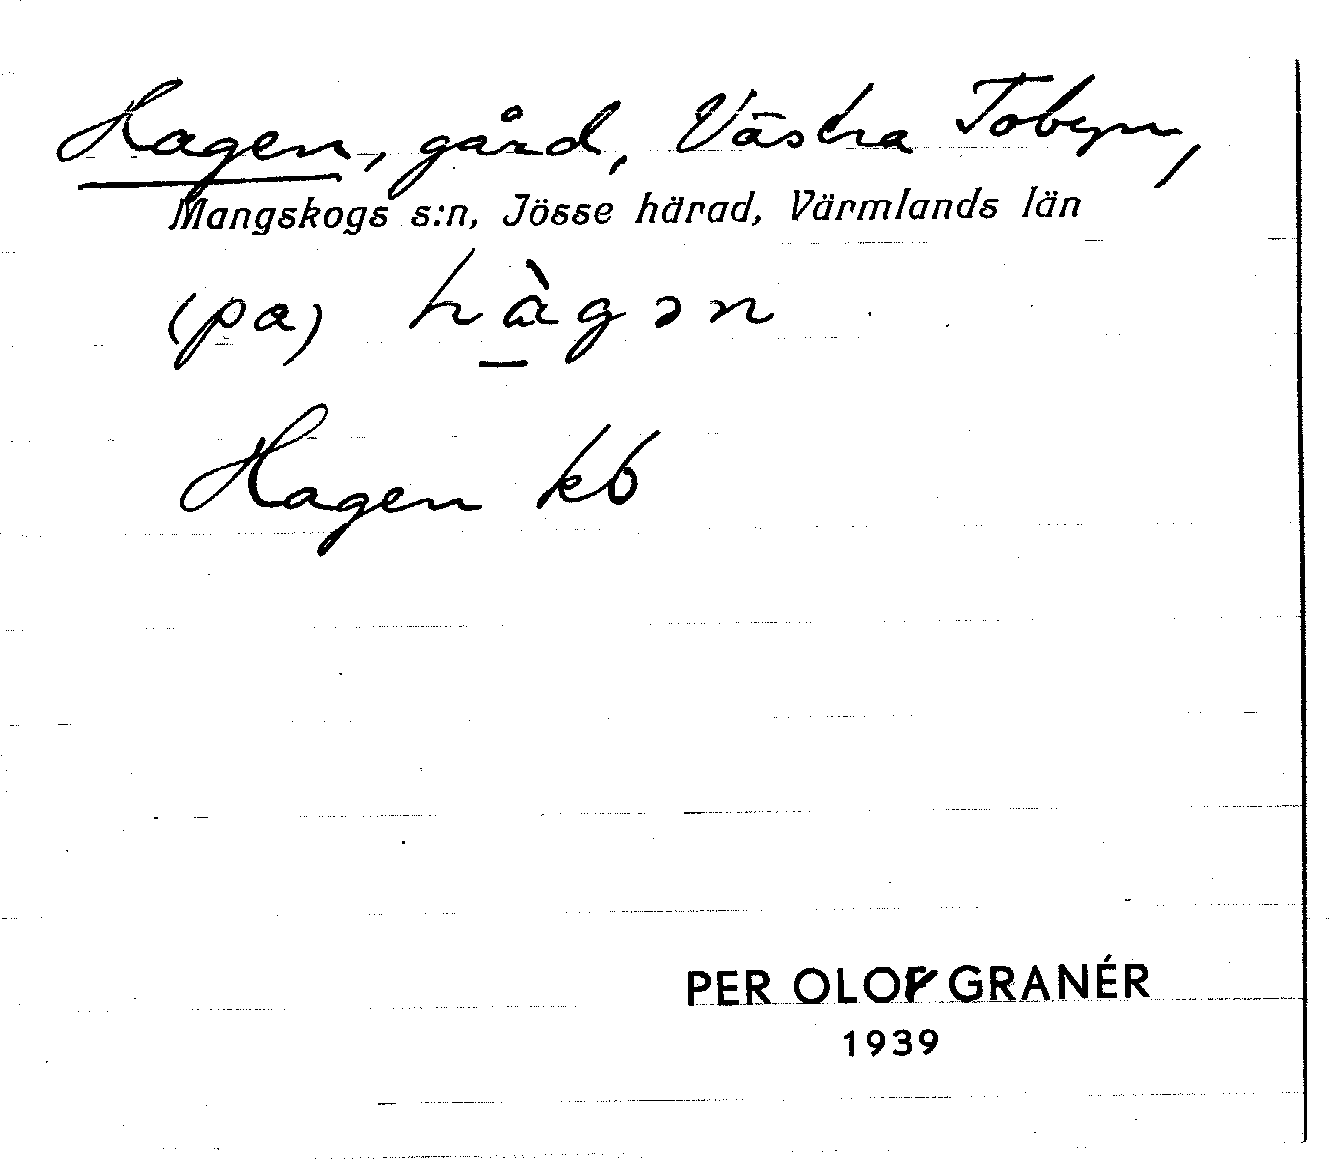 Hagen, gård, Västra Tobyn,
Mangskogs s:n, Jösse härad, Värmlands län
(pa) hàgən
Hagen kb
PER OLOF GRANÉR
1939